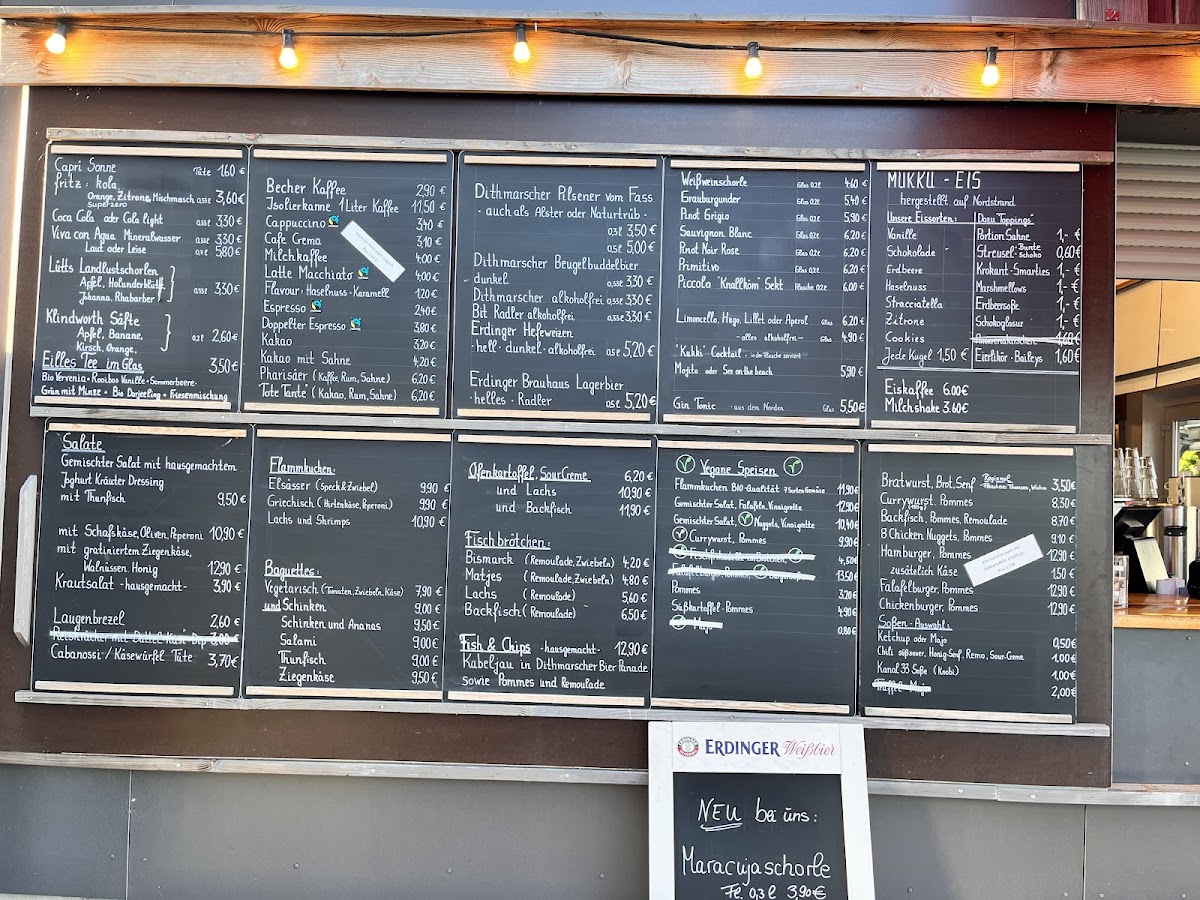 Capri Sonne Tüte 1.60 €
fritz: kola,
Orange, Zitrone, Mischmasch 0,33 l 3,60 €
Superzero
Coca Cola oder Cola light 0,33 l 3,30 €
Viva con Agua Mineralwasser 0.33 l 3.30 €
Laut oder Leise 0.75 l 5,80 €
Lütts Landlustschorlen
Apfel, Holunderblüte, 0,33 l 3,30 €
Johanna, Rhabarber
Klindworth Säfte
Apfel, Banane, 0.2 l 2,60 €
Kirsch, Orange,
Eilles Tee im Glas 3,50 €
Bio Vervenia • Rooibos Vanille • Sommerbeere
Grün mit Minze • Bio Darjeeling • Friesenmischung
Becher Kaffee 2,90 €
Isolierkanne 1 Liter Kaffee 11,50 €
Cappuccino 3,40 €
Cafe Crema 3,10 €
Milchkaffee 4,00 €
Latte Macchiato 4,00 €
Flavour • Haselnuss • Karamell 1,20 €
Espresso 2,40 €
Doppelter Espresso 3,80 €
Kakao 3,20 €
Kakao mit Sahne 4,20 €
Pharisäer (Kaffee, Rum, Sahne) 6,20 €
"Tote Tante" (Kakao, Rum, Sahne) 6,20 €
Dithmarscher Pilsener vom Fass
· auch als Alster oder Naturtrüb ·
0,3 l 3,50 €
0,5 l 5,00 €
Dithmarscher Beugelbuddelbier
dunkel 0,33 l 3,30 €
Dithmarscher alkoholfrei 0.33 l 3.30 €
Bit Radler alkoholfrei 0.33 l 3,30 €
Erdinger Hefeweizen
· hell · dunkel · alkoholfrei 0.5 l 5,20 €
Erdinger Brauhaus Lagerbier
· helles · Radler 0.5 l 5,20 €
Weißweinschorle Glas 0.2 l 4,60 €
Grauburgunder Glas 0.2 l 5,40 €
Pinot Grigio Glas 0.2 l 5,90 €
Sauvignon Blanc Glas 0.2 l 6,20 €
Pinot Noir Rose Glas 0.2 l 6,20 €
Primitivo Glas 0.2 l 6,20 €
Piccolo "Knallköm" Sekt Flasche 0.2 l 6,00 €
Limoncello, Hugo, Lillet oder Aperol Glas 6,20 €
- alles alkoholfrei - Glas 4,90 €
"Kukki" Cocktail · in der Flasche serviert
Mojito oder Sex on the beach 5,90 €
Gin Tonic · aus dem Norden Glas 5,50 €
MUKKU - EIS
hergestellt auf Nordstrand
Unsere Eissorten: Dazu Toppings:
Vanille Portion Sahne 1,- €
Schokolade Streusel · Bunte · Schoko 0,60 €
Erdbeere Krokant · Smarties 1,- €
Haselnuss Marshmellows 1,- €
Stracciatella Erdbersoße 1,- €
Zitrone Schokoglasur 1,- €
Cookies 1,60 €
Jede Kugel 1,50 € Eierlikör · Baileys 1,60 €
Eiskaffee 6.00 €
Milchshake 3.60 €
Salate
Gemischter Salat mit hausgemachtem
Joghurt Kräuter Dressing
mit Thunfisch 9,50 €
mit Schafskäse, Oliven, Peperoni 10,90 €
mit gratiniertem Ziegenkäse,
Walnüssen, Honig 12,90 €
Krautsalat - hausgemacht - 3,90 €
Laugenbrezel 2,60 €
Reiskräcker mit Dattel Käse Dip 3,00
Cabanossi-/Käsewürfel Tüte 3,70 €
Flammkuchen:
Elsässer (Speck & Zwiebel) 9,90 €
Griechisch (Hirtenkäse, Peperoni) 9,90 €
Lachs und Shrimps 10,90 €
Baguettes:
Vegetarisch (Tomaten, Zwiebeln, Käse) 7,90 €
und Schinken 9,00 €
Schinken und Ananas 9,50 €
Salami 9,00 €
Thunfisch 9,00 €
Ziegenkäse 9,50 €
Ofenkartoffel, SourCreme 6,20 €
und Lachs 10,90 €
und Backfisch 11,90 €
Fischbrötchen:
Bismarck (Remoulade, Zwiebeln) 4,20 €
Matjes (Remoulade, Zwiebeln) 4.80 €
Lachs (Remoulade) 5,60 €
Backfisch (Remoulade) 6,50 €
Fish & Chips - hausgemacht - 12,90 €
Kabeljau in Dithmarscher Bier Panade
sowie Pommes und Remoulade
Vegane Speisen
Flammkuchen BIO-Qualität 7 Sorten Gemüse 11,90 €
Gemischter Salat, Falafeln, Vinaigrette 12,90 €
Gemischter Salat, Nuggets, Vinaigrette 10,40 €
Currywurst, Pommes 9,90 €
4,50 €
Falafelburger, Pommes, 13,50 €
Pommes 3,20 €
Süßkartoffel-Pommes 4,90 €
Majo 0,80 €
Bratwurst, Brot, Senf Regional 3,50 €
Currywurst, Pommes 8,30 €
Backfisch, Pommes, Remoulade 8,70 €
8 Chicken Nuggets, Pommes 9.10 €
Hamburger, Pommes 12,90 €
zusätzlich Käse 1,50 €
Falafelburger, Pommes 12,90 €
Chickenburger, Pommes 12,90 €
Soßen-Auswahl:
Ketchup oder Majo 0,50 €
Chili süßsauer, Honig-Senf, Remo, Sour-Creme 1,00 €
Kanal 33 Soße (Knobi) 1,00 €
Trüffel-Majo 2,00 €
ERDINGER Weißbier
NEU bei uns:
Maracujaschorle
Fl. 0,3 l 3,90 €